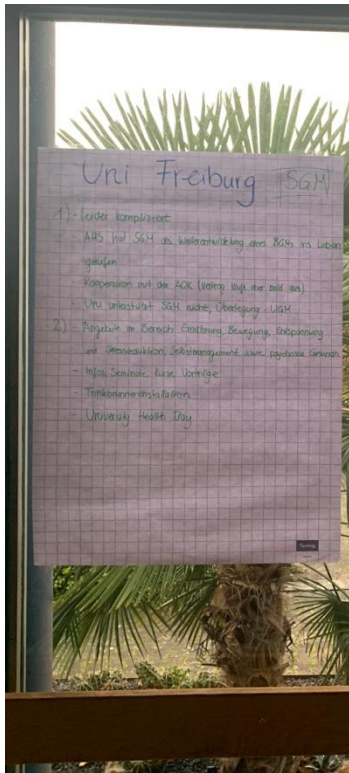 Uni Freiburg SGM
1) - leider kompliziert
- AHS hat SGM als Weiterentwicklung des BGMs ins Leben
gerufen
- Kooperation mit der AOK (Vertrag läuft aber bald aus)
- Uni unterstützt SGM nicht, Überlegung: UGM
2) - Angebote im Bereich Ernährung, Bewegung, Entspannung
und Stressreduktion, Selbstmanagement sowie psychische Gesundh.
- Infos, Seminare, Kurse, Vorträge
- Trinkbrunneninstallation
- University Health Day